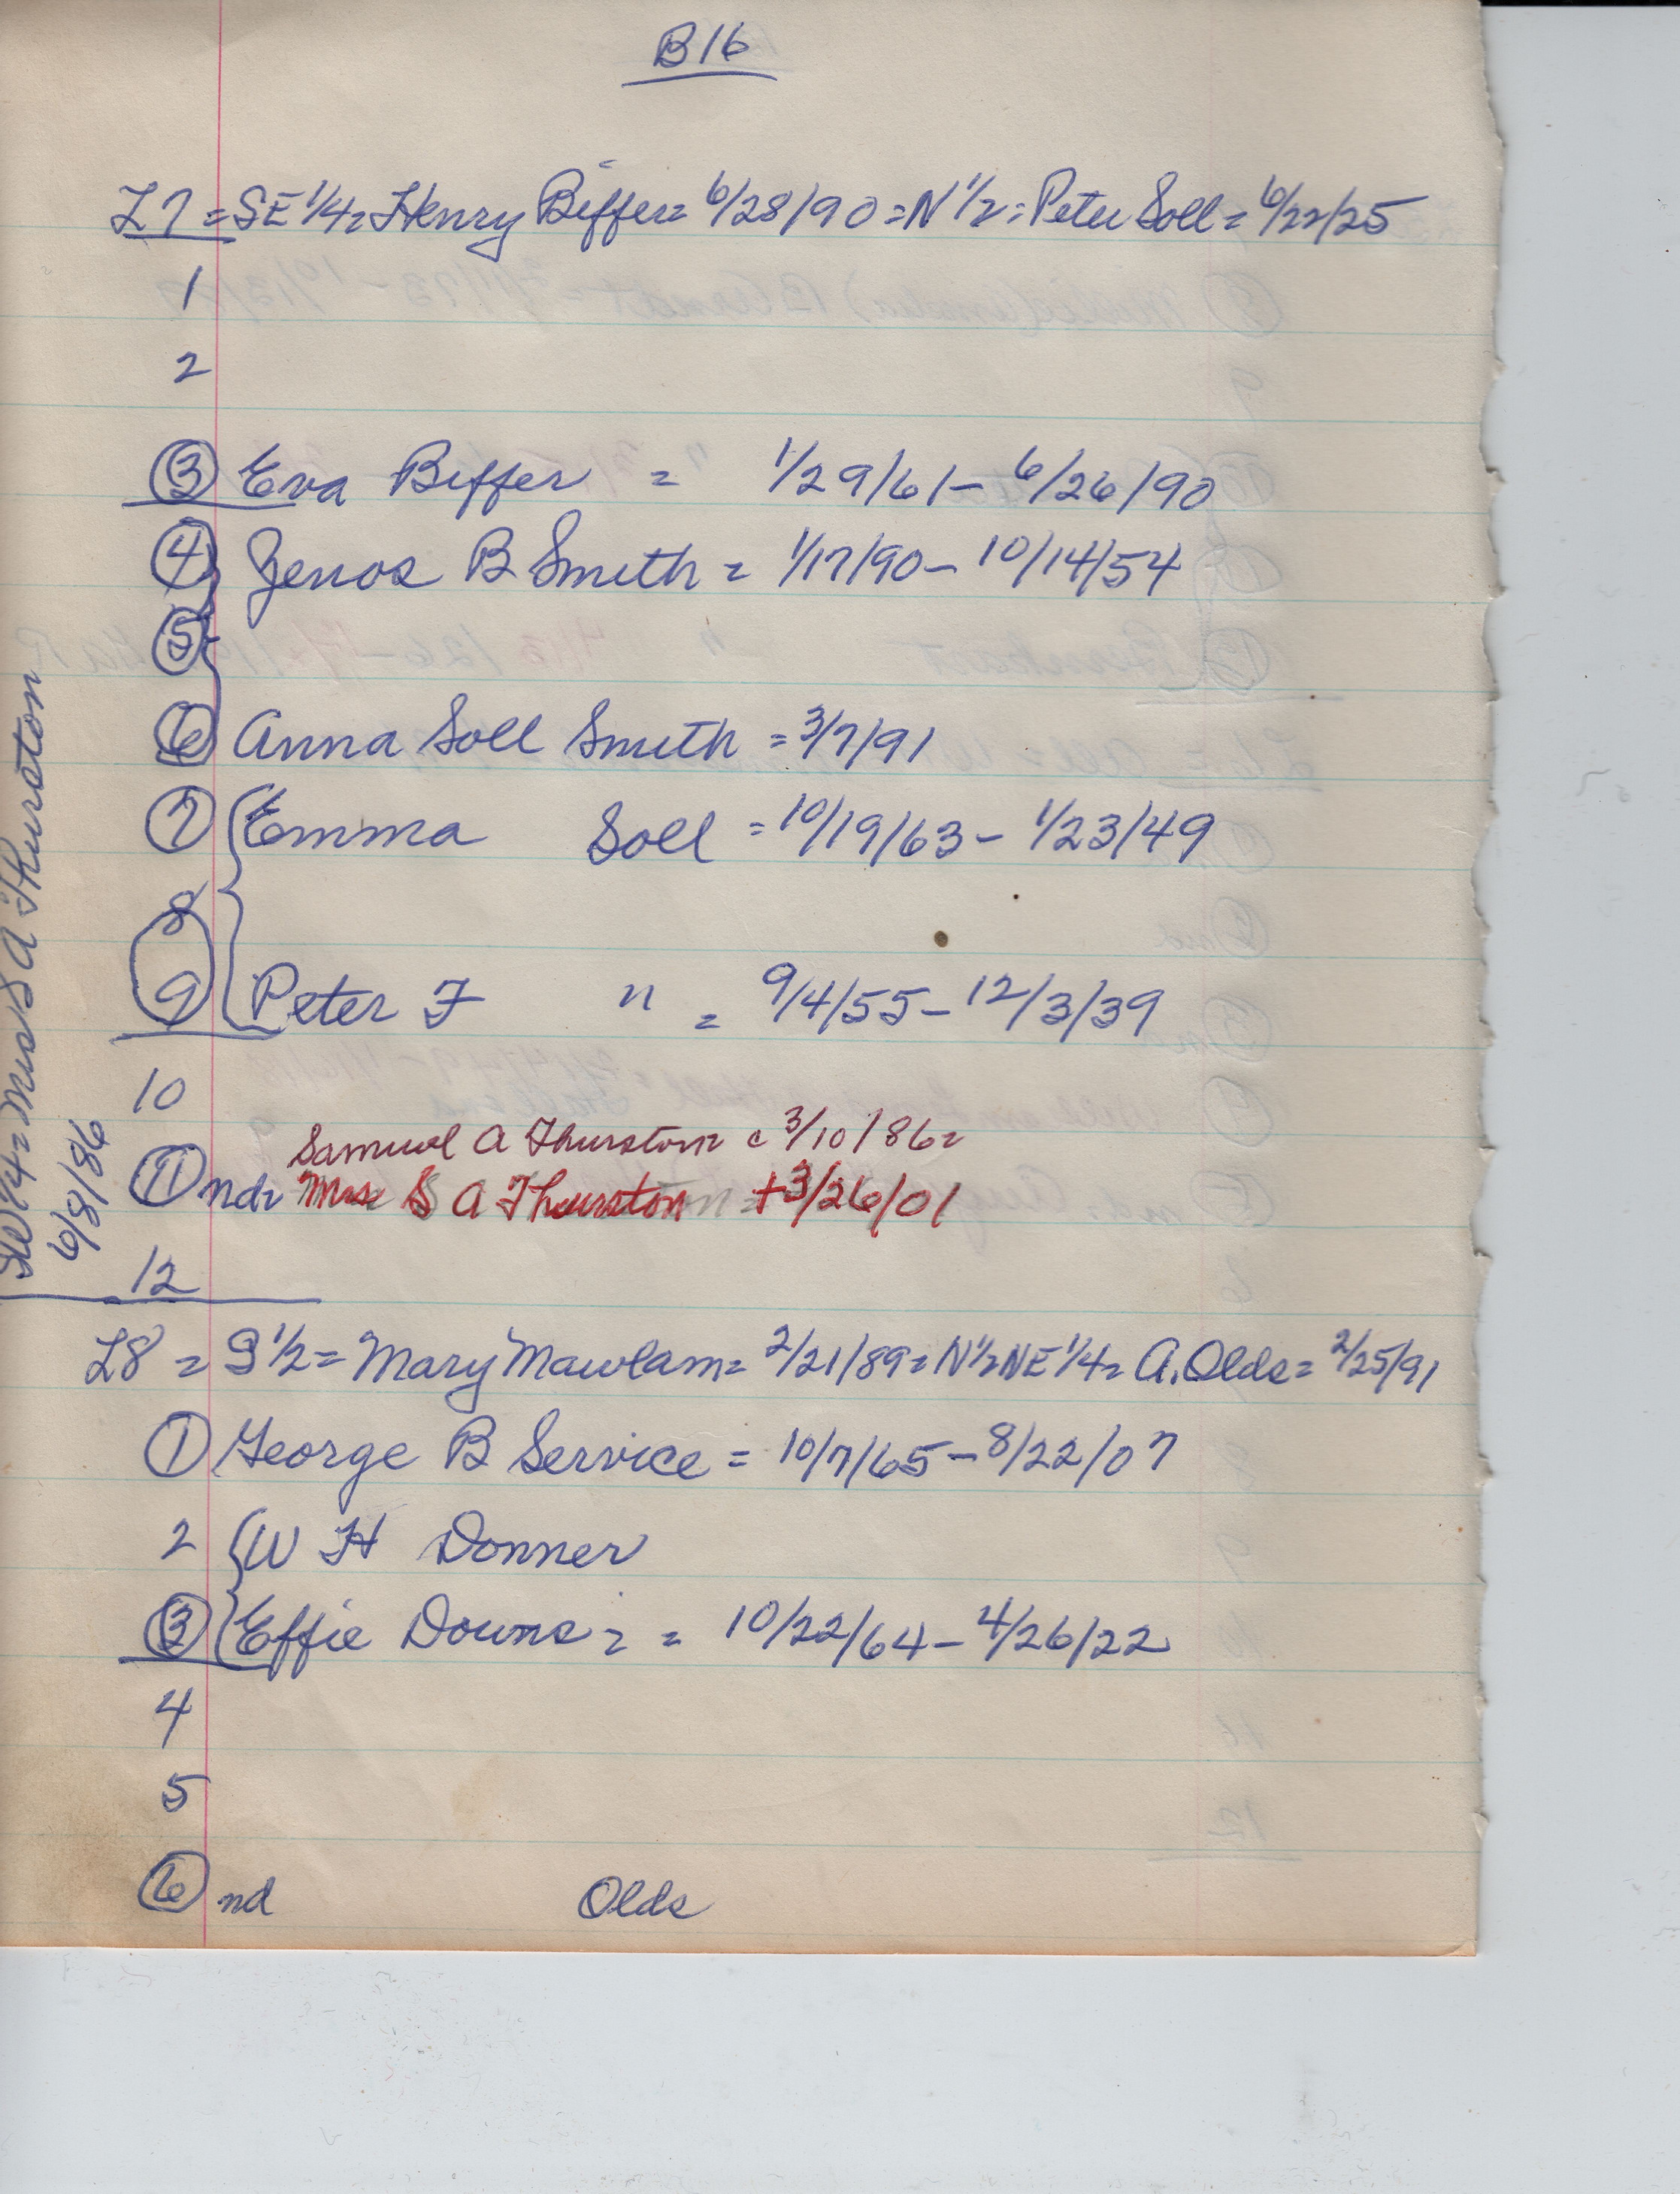 B16
L7 = SE 1/4 = Henry Biffer = 6/28/90 = N 1/2 = Peter Soll = 6/22/25
1
2
3 Eva Biffer = 1/29/61 - 6/26/90
4 Zenos B Smith = 1/17/90 - 10/14/54
5
6 Anna Soll Smith = 3/7/91
7 Emma Soll = 10/19/63 - 1/23/49
8
9 Peter F " = 9/4/55 - 12/3/39
10
Samuel A Thurston = c 3/10/86 =
11 nd = Mrs S A Thurston + 3/26/01
12
1/4 = Mrs S A Thurston
6/8/86
L8 = S 1/2 = Mary Mawlam = 2/21/89 = N 1/2 NE 1/4 = A. Olds = 2/25/91
1 George B Service = 10/7/65 - 8/22/07
2 W H Donner
3 Effie Downs = = 10/22/64 - 4/26/22
4
5
6 nd Olds